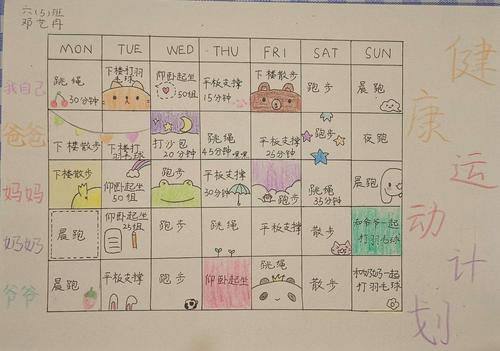 六(5)班
邓艺冉
MON TUE WED THU FRI SAT SUN
我自己
跳绳
30分钟
下楼打羽
毛球
仰卧起坐
50组
平板支撑
15分钟
下楼散步
跑步
晨跑
爸爸
下楼散步
下楼打
羽毛球
打沙包
20分钟
跳绳
45分钟
平板支撑
25分钟
跑步
夜跑
妈妈
下楼散步
仰卧起坐
50组
跑步
平板支撑
30分钟
跑步
跳绳
35分钟
晨跑
奶奶
晨跑
仰卧起坐
25组
跑步
跳绳
平板支撑
散步
和爷爷一起
打羽毛球
爷爷
晨跑
平板支撑
跑步
仰卧起坐
跳绳
散步
和奶奶一起
打羽毛球
健康运动计划